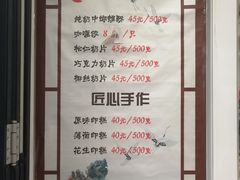 纯奶中端雏酥 45元/500克
咖喱饺 8元/只
松仁奶片 45元/500克
巧克力奶片 45元/500克
御丝奶片 45元/500克
匠心手作
原味印糕 40元/500克
薄荷印糕 40元/500克
花生印糕 40元/500克